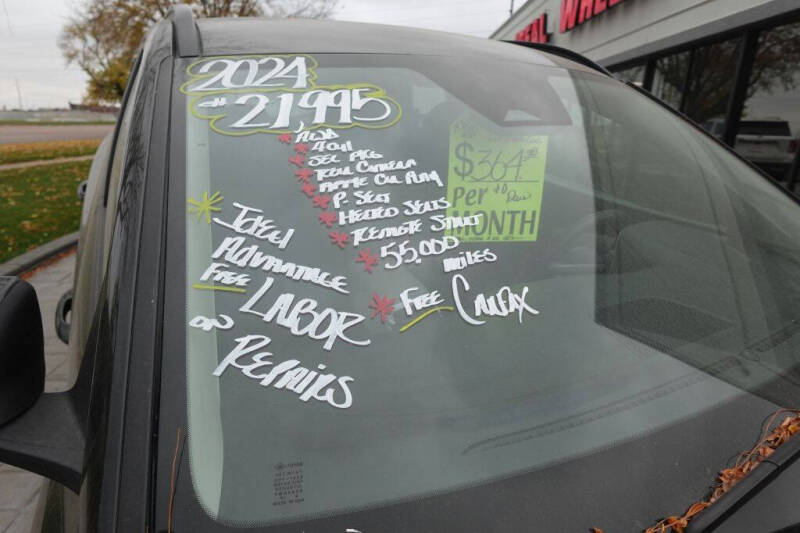 2024
$21,995
* AWD
* 4 Cyl
* SEL PKG
* REAR CAMERA
* APPLE CAR PLAY
* P. SEAT
* HEATED SEATS
* REMOTE START
* 55,000
MILES
* FREE CARFAX
* IDEAL
ADVANTAGE
FREE
LABOR
ON
REPAIRS
$364
Per
MONTH
IDEAL WHEEL